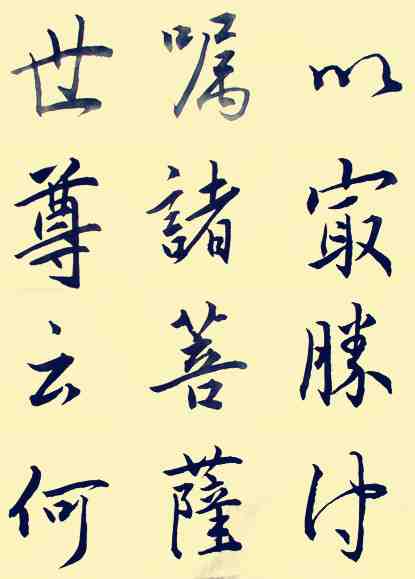 以㝡勝付
嘱諸菩薩
世尊云何